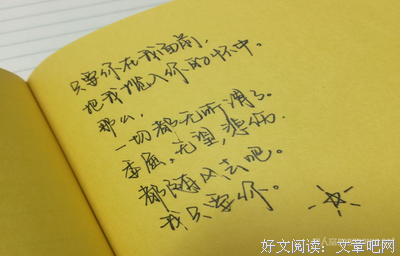 只要你在我面前,
把我揽入你的怀中。
那么,
一切都无所谓了。
委屈,无望,悲伤.
都随风去吧。
我只要你。
好文阅读:文章吧网